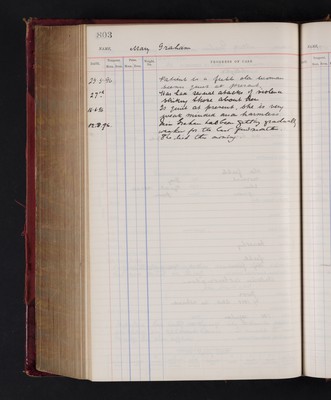 803
NAME, Mary Graham
DATE. PROGRESS OF CASE
23.5.96 Patient is a feeble old woman
seems quiet at present,
27th Has had several attacks of violence
striking those about her
Is quiet at present, she is very
weak minded and harmless
Mrs Graham has been getting gradually
weaker for the last fortnight
She died this evening
NAME